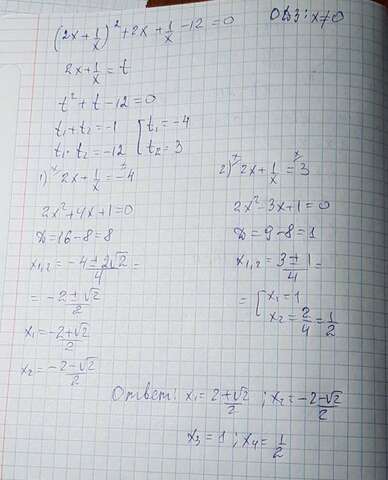 (2x+1/x)²+2x+1/x-12=0 ОДЗ: x≠0
2x+1/x=t
t²+t-12=0
t₁+t₂=-1 [t₁=-4
t₁·t₂=-12 [t₂=3
1) 2x+1/x=-4
2x²+4x+1=0
D=16-8=8
x₁,₂=(-4±2√2)/4=
=(-2±√2)/2
x₁=(-2+√2)/2
x₂=(-2-√2)/2
2) 2x+1/x=3
2x²-3x+1=0
D=9-8=1
x₁,₂=(3±1)/4=
=[x₁=1
[x₂=2/4=1/2
Ответ: x₁=(2+√2)/2; x₂=(-2-√2)/2
x₃=1; x₄=1/2